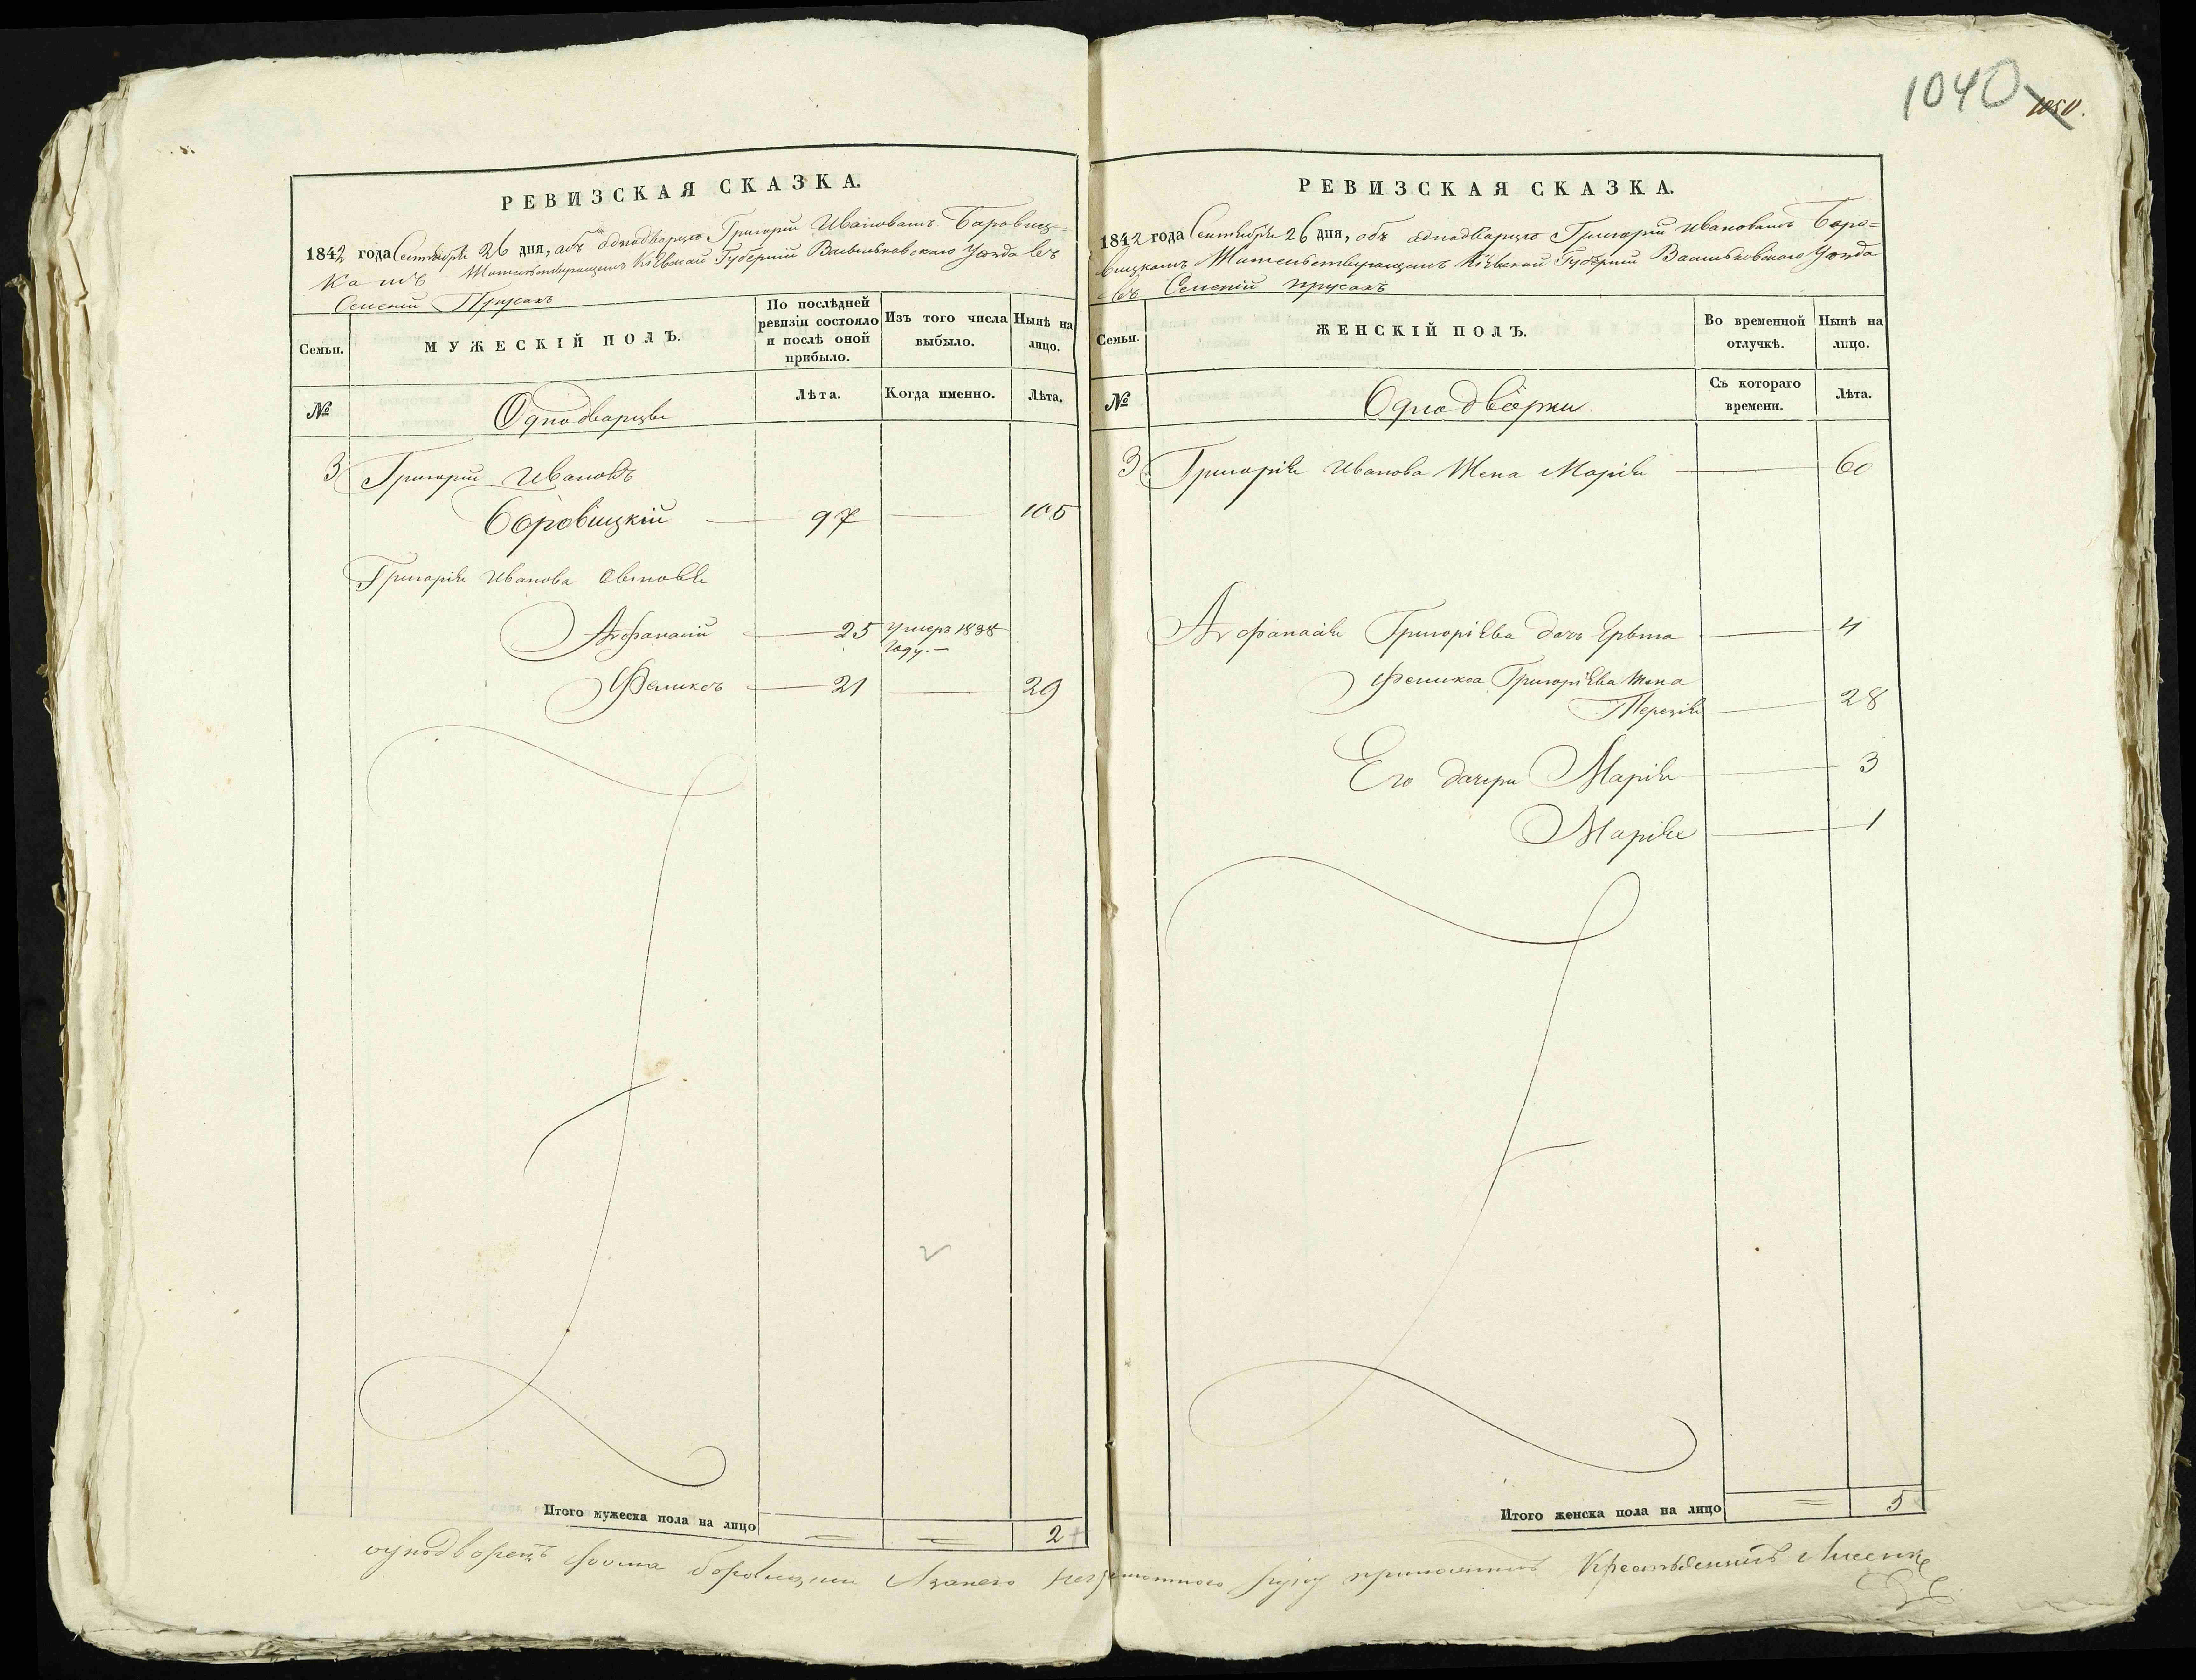 1040
1050.
РЕВИЗСКАЯ СКАЗКА.
1842 года Сентября 26 дня, объ однодворцѣ Григорій Ивановамъ Боровиц-
камъ Жительствующемъ Кіевской Губерніи Васильковскаго Уѣзда въ
Селеніи Прусахъ
Семьи.
МУЖЕСКІЙ ПОЛЪ.
По послѣдней ревизіи состояло и послѣ оной прибыло.
Изъ того числа выбыло.
Нынѣ на лицо.
№
Однодворцы
Лѣта.
Когда именно.
Лѣта.
3 Григорій Ивановъ
Боровицкій — 97 — 105
Григорія Иванова сыновья
Афанасій — 25 умеръ 1838
году. —
Феликсъ — 21 — 29
Итого мужеска пола на лицо = = 2
РЕВИЗСКАЯ СКАЗКА.
1842 года Сентября 26 дня, объ однодворцѣ Григорій Ивановамъ Боро=
вицкамъ Жительствующемъ Кіевской Губерніи Васильковскаго Уѣзда
въ Селеніи Прусахъ
Семьи.
ЖЕНСКІЙ ПОЛЪ.
Во временной отлучкѣ.
Нынѣ на лицо.
№
Однодворки
Съ котораго времени.
Лѣта.
3 Григорія Иванова Жена Марія — 60
Афанасія Григоріева дочь — 4
Феликса Григоріева жена
Терезія — 28
Его дочери Марія — 3
Марія — 1
Итого женска пола на лицо = 5
однодворецъ Боровицкій